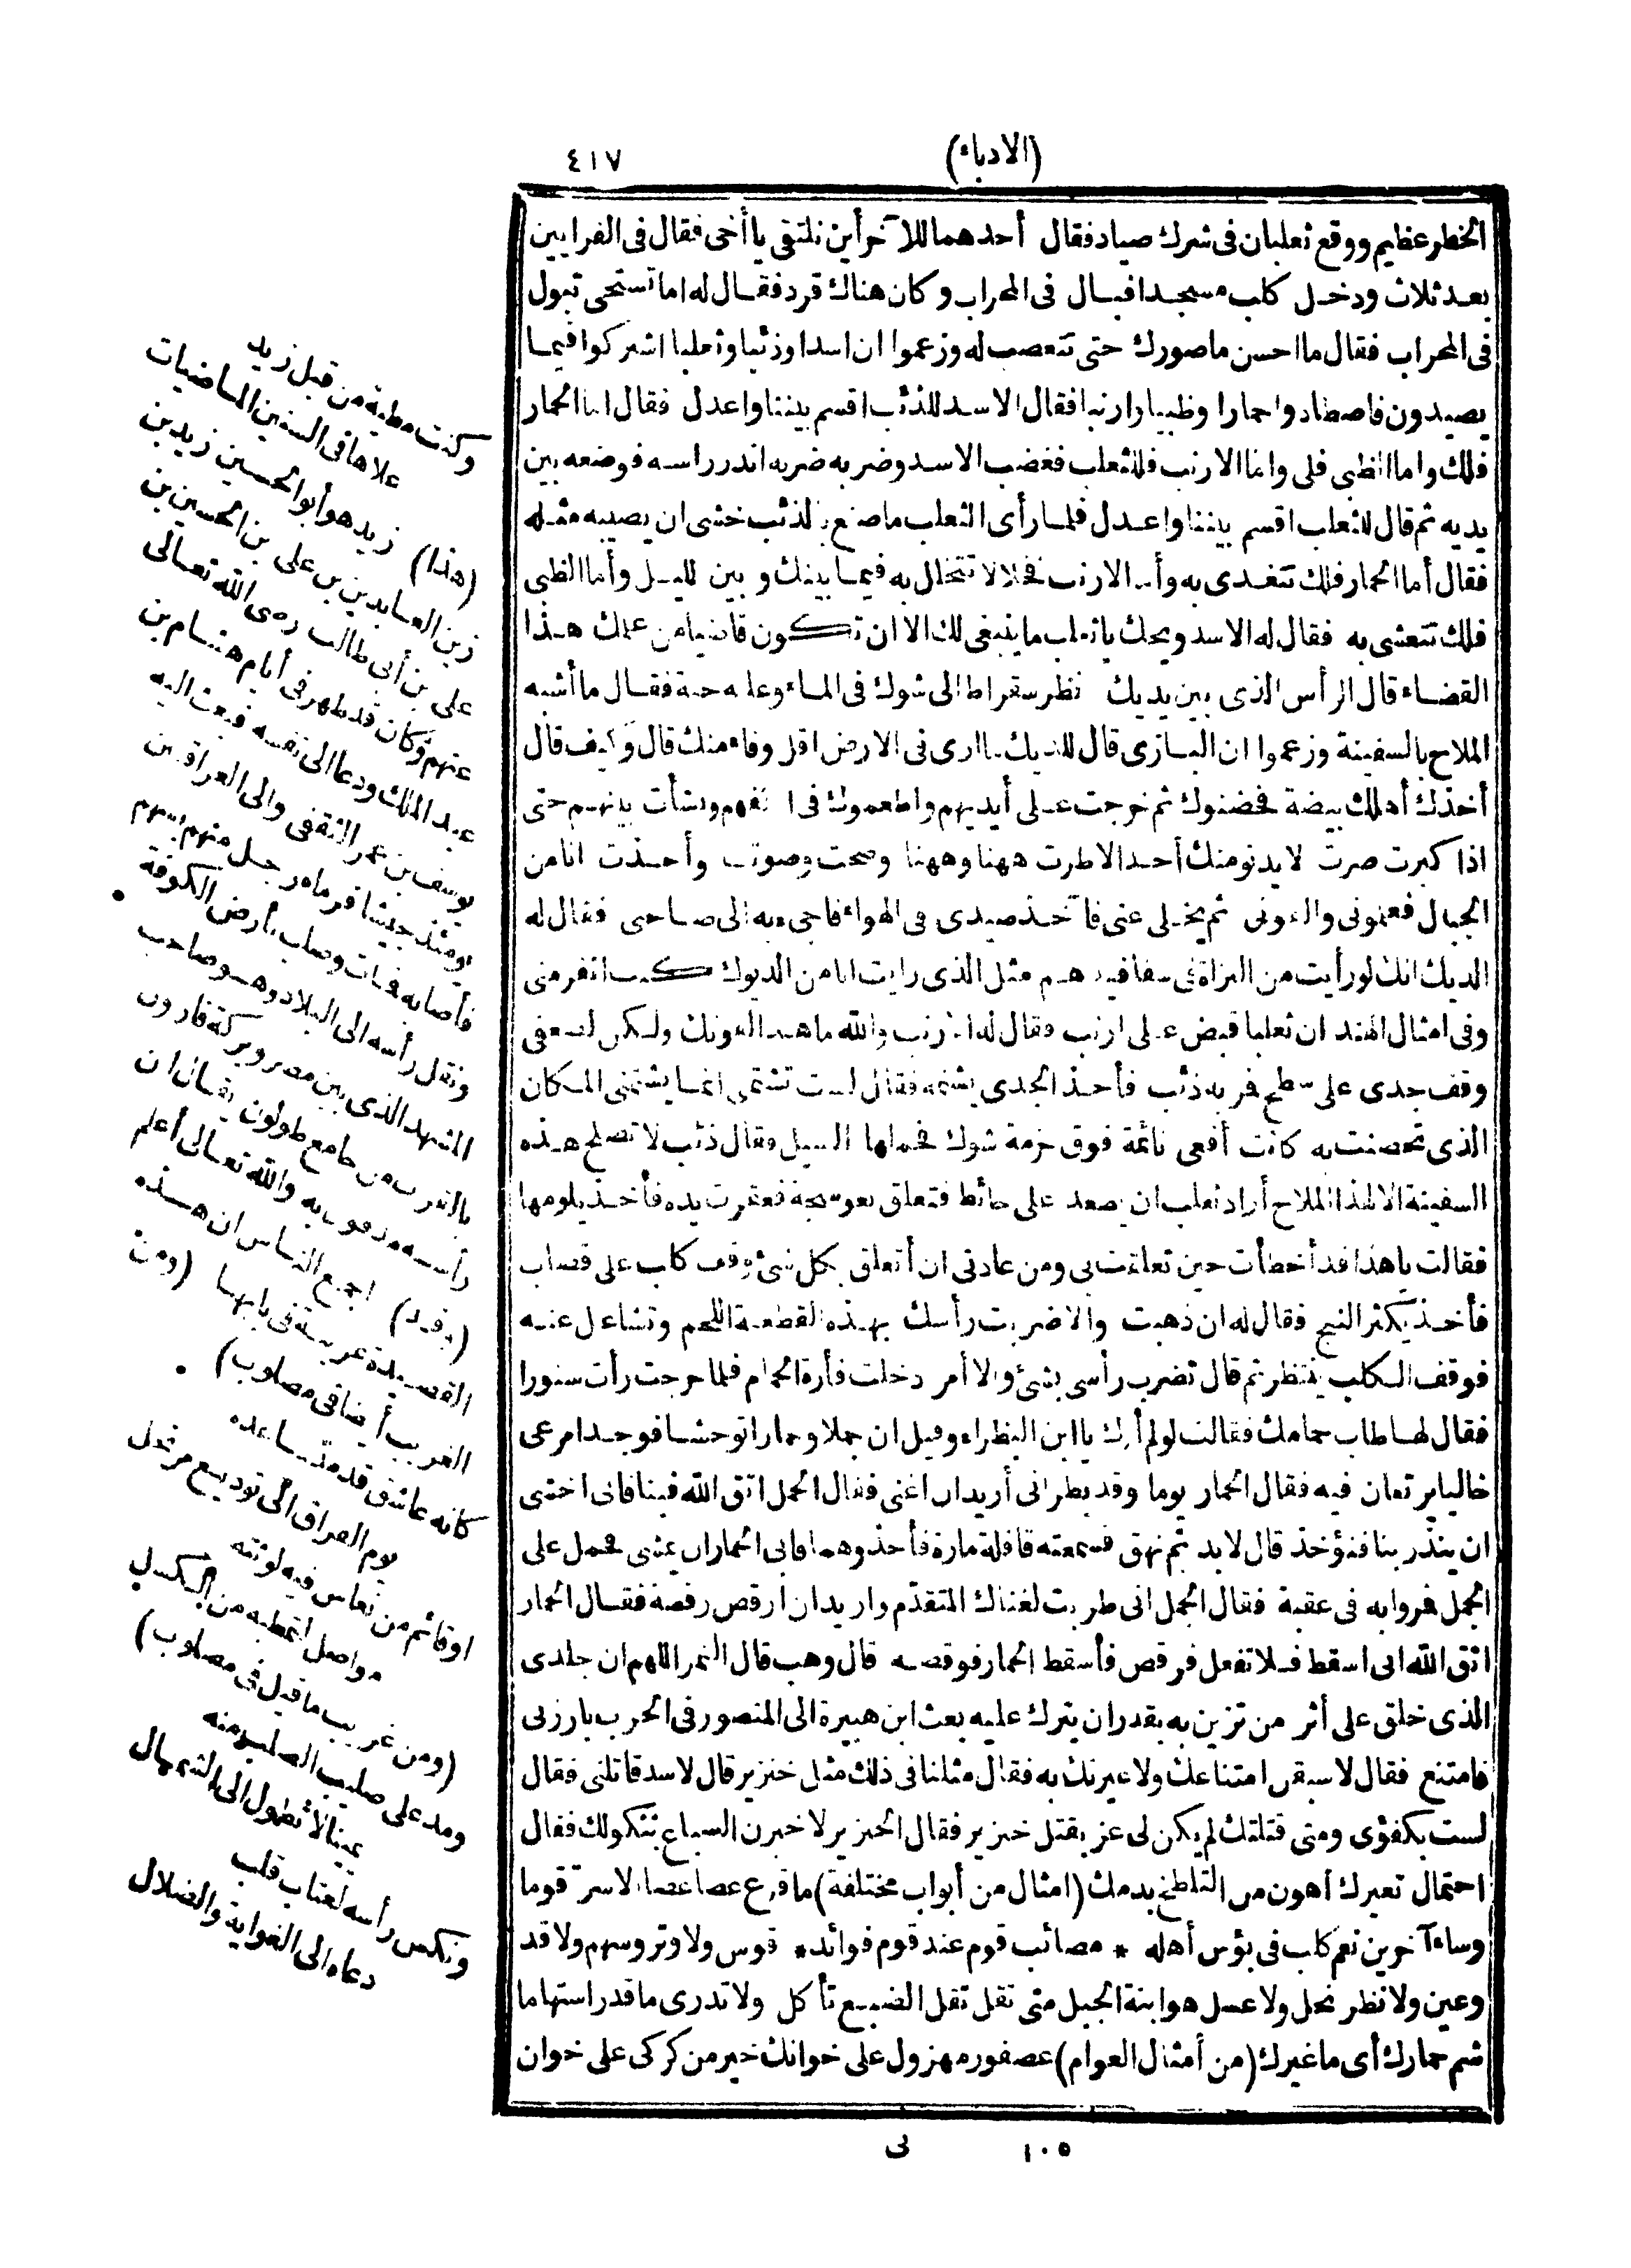 (الادباء)
٤١٧
الخطر عظيم ووقع ثعلبان فى شرك صياد فقال أحدهما للآخر أين نلتقى يا أخى فقال فى الفرايين
بعد ثلاث ودخل كلب مسجدا فبال فى المحراب وكان هناك قرد فقال له اما تستحى تبول
فى المحراب فقال ما احسن ماصورك حتى تتعصب له وزعموا ان اسدا وذئبا وثعلبا اشتركوا فيما
يصيدون فاصطادوا حمارا وظبيا وارنبا فقال الاسد للذئب اقسم بيننا واعدل فقال اما الحمار
فلك واما الظبى فلى واما الارنب فللثعلب فغضب الاسد وضربه ضربة اندر راسه فوضعه بين
يديه ثم قال للثعلب اقسم بيننا واعدل فلما رأى الثعلب ما صنع بالذئب خشى ان يصيبه مثله
فقال أما الحمار فلك تتغدى به وأما الارنب فخلالا تتخلل به فيما بينك وبين الليل وأما الظبى
فلك تتعشى به فقال له الاسد ويحك ياثعلب ما ينبغى لك الا ان تكون قاضيا من علمك هذا
القضاء قال الرأس الذى بين يديك نظر سقراط الى شوك فى الماء وعليه حية فقال ما أشبه
الملاح بالسفينة وزعموا ان البازى قال للديك ما ارى فى الارض اقل وفاء منك قال وكيف قال
أخذك أهلك بيضة فحضنوك ثم خرجت على أيديهم واطعموك فى اكفهم ونشأت بينهم حتى
اذا كبرت صرت لا يدنو منك أحد الا طرت ههنا وههنا وصحت وصوتّ وأخذت انا من
الجبال فعلمونى والفونى ثم يخلى عنى فآخذ صيدى فى الهواء فاجىء به الى صاحبى فقال له
الديك انك لو رأيت من البزاة فى سفافيدهم مثل الذى رايت انا من الديوك لكنت انفر منى
وفى امثال الهند ان ثعلبا قبض على ارنب فقال له الارنب والله ما هذا لقوتك ولكن لضعفى
وقف جدى على سطح فمر به ذئب فأخذ الجدى يشتمه فقال لست تشتمنى انما يشتمنى المكان
الذى تحصنت به كانت أفعى نائمة فوق حزمة شوك فحملها السيل فقال ذئب لا تصلح هذه
السفينة الا لهذا الملاح أراد ثعلب ان يصعد على حائط فتعلق بعوسجة فعقرت يده فأخذ يلومها
فقالت ياهذا قد أخطأت حين تعلقت بى ومن عادتى ان أتعلق بكل شئ وقف كلب على قصاب
فأخذ يكثر النبح فقال له ان ذهبت والا ضربت رأسك بهذه القطعة اللحم وتشاغل عنه
فوقف الكلب ينتظر ثم قال تضرب رأسى بشئ والا أمر دخلت فأرة الحمام فلما خرجت رأت سنورا
فقال لها طاب حمامك فقالت لو لم أرك يا ابن البظراء وقيل ان جملا وحمارا توحشا فوجدا مرعى
خاليا يرتعان فيه فقال الحمار يوما وقد بطر انى أريد ان اغنى فقال الجمل اتق الله فينا فانى اخشى
ان ينذر بنا فنؤخذ قال لا بد ثم نهق فسمعته قافلة مارة فأخذوهما فابى الحمار ان يمشى فحمل على
الجمل فمروا به فى عقبة فقال الجمل انى طربت لغنائك المتقدّم واريد ان ارقص رقصة فقال الحمار
اتق الله انى اسقط فلا تفعل فرقص فأسقط الحمار فوقصه قال وهب قال النمر اللهم ان جلدى
الذى خلق على أثر من تزين به بقدر ان يترك عليه بعث ابن هبيرة الى المنصور فى الحرب بارزنى
فامتنع فقال لا سبقن امتناعك ولا عيرنك به فقال مثلنا فى ذلك مثل خنزير قال لاسد قاتلنى فقال
لست بكفؤى ومتى قتلتك لم يكن لى عز بقتل خنزير فقال الخنزير لاخبرن السباع بنكولك فقال
احتمال تعيرك أهون من التلطخ بدمك (امثال من أبواب مختلفة) ما قرع عصا عصا الا سرّ قوما
وساء آخرين نعم كلب فى بؤس أهله * مصائب قوم عند قوم فوائد * قوس ولا وتر وسهم ولا قد
وعين ولا نظر نحل ولا عسل هو ابنة الجبل متى تقل تقل الضبع تأكل ولا تدرى ما قدر استها ما
شم حمارك أى ما غيرك (من أمثال العوام) عصفور مهزول على خوانك خير من كركى على خوان
وكنت مطية من قبل زيد
علاها فى السنين الماضيات
(هذا) زيد هو أبو الحسين زيد بن
زين العابدين بن على بن الحسين بن
على بن أبى طالب رضى الله تعالى
عنهم وكان قد ظهر فى أيام هشام بن
عبد الملك ودعا الى نفسه فبعث اليه
يوسف بن عمر الثقفى والى العراقين
يومئذ جيشا فرماه رجل منهم بسهم
فأصابه فمات وصلب بأرض الكوفة
ونقل رأسه الى البلاد وهو صاحب
المشهد الذى بين مصر وبركة قارون
بالقرب من جامع طولون يقال ان
رأسه مدفون به والله تعالى أعلم
(وقد) اجمع الناس ان هذه
القصيدة غريبة فى بابها (ومن
الغريب أيضا فى مصلوب)
كانه عاشق قد مدّ ساعده
يوم الفراق الى توديع مرتحل
او قائم من نعاس فيه لوثته
مواصل لتمطيه من الكسل
(ومن غريب ما قيل فى مصلوب)
ومد على صليب الصلب منه
يمينا لا تطول الى الشمال
ونكس رأسه لعتاب قلب
دعاه الى الغواية والضلال
١٠٥ لى